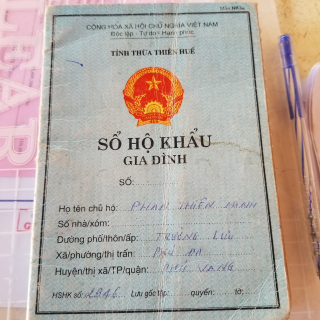 Mẫu NK3a
CỘNG HÒA XÃ HỘI CHỦ NGHĨA VIỆT NAM
Độc lập - Tự do - Hạnh phúc
TỈNH THỪA THIÊN HUẾ
SỔ HỘ KHẨU
GIA ĐÌNH
SỐ:
Họ tên chủ hộ: PHAN THIÊN MINH
Số nhà/xóm:
Đường phố/thôn/ấp: TRƯỜNG LƯU
Xã/phường/thị trấn: PHÚ ĐA
Huyện/thị xã/TP/quận: PHÚ VANG
HSHK số: 2946 Lưu gốc tập: quyển: tờ: